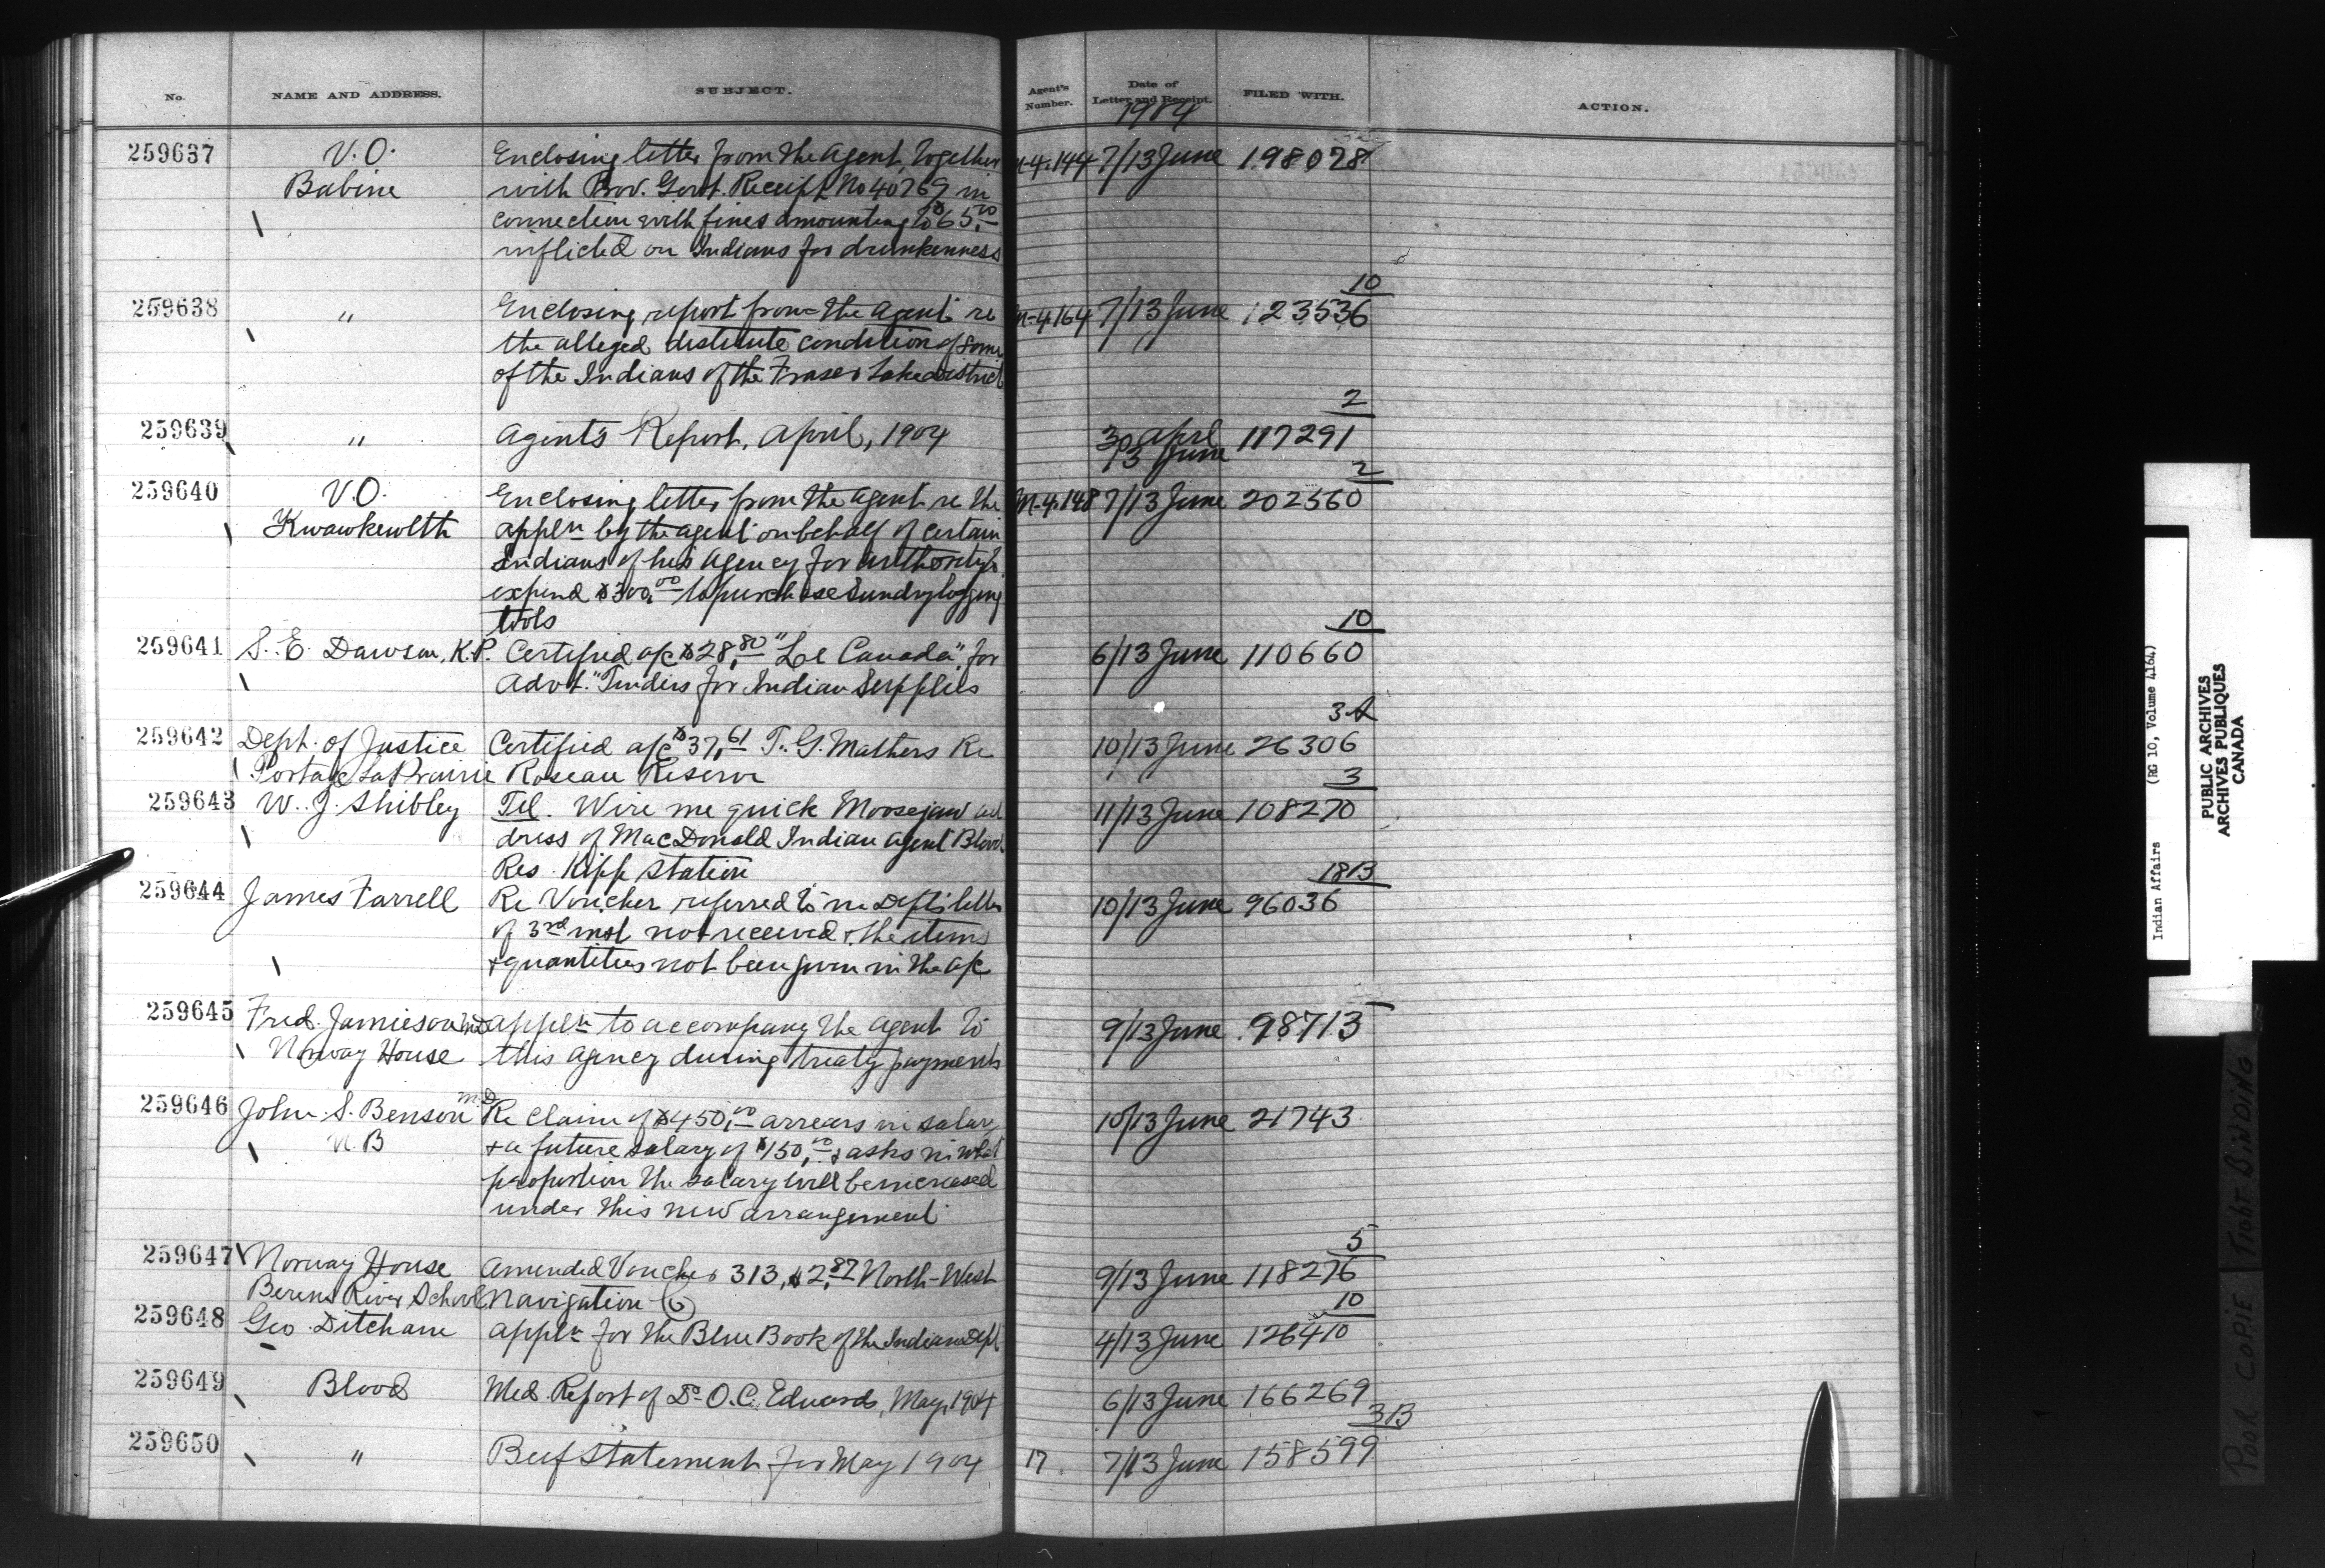 No. NAME AND ADDRESS. SUBJECT. Agent's Number. Date of Letter and Receipt. FILED WITH. ACTION.
1904
259637 V.O. Enclosing letter from the Agent, together M-4.144 7/13 June 198078
Babine with Prov. Govt. Receipt No 40769 in
connection with fines amounting to $65.00
inflicted on Indians for drunkenness
10
259638 " Enclosing report from the Agent re M-4.164 7/13 June 123536
the alleged destitute condition of some
of the Indians of the Fraser Lake district
2
259639 " Agent's Report, April, 1904 30 April 117291
13 June
2
259640 V.O. Enclosing letter from the Agent re the M-4.148 7/13 June 202560
Kwawkewlth appln by the agent on behalf of certain
Indians of his Agency for authority to
expend $300.00 to purchase sundry logging
tools
10
259641 S. E. Dawson, K.P. Certified a/c $28.80 "Le Canada", for 6/13 June 110660
Advt. "Tenders for Indian Supplies
3A
259642 Dept. of Justice Certified a/c $37.61 T. G. Mathers Re 10/13 June 26306
Portage La Prairie Roseau Reserve
3
259643 W. J. Shibley Tel. Wire me quick Moosejaw ad 11/13 June 108270
dress of MacDonald Indian agent Blood
Res. Kipp Station
18B
259644 James Farrell Re Voucher referred to in Dept's letter 10/13 June 96036
of 3rd inst not received & the items
& quantities not been given in the a/c
259645 Fred. Jamieson MD appln to accompany the agent to 9/13 June 98713
Norway House this agency during treaty payments
259646 John S. Benson M.D. Re Claim of $450.00 arrears in salary 10/13 June 21743
N.B & a future salary of $150.00 & asks in what
proportion the salary will be increased
under this new arrangement
5
259647 Norway House Amended Voucher 313, $2.87 North-West 9/13 June 118276
Berens River School Navigation Co
10
259648 Geo. Ditcham appln for the Blue Book of the Indian Dept 4/13 June 126410
259649 Blood Med. Report of Dr O.C. Edwards, May, 1904 6/13 June 166269
3B
259650 " Beef Statement for May 1904 17 7/13 June 158599
Indian Affairs (RG 10, Volume 4164)
PUBLIC ARCHIVES
ARCHIVES PUBLIQUES
CANADA
POOR COPIE TIGHT BINDING